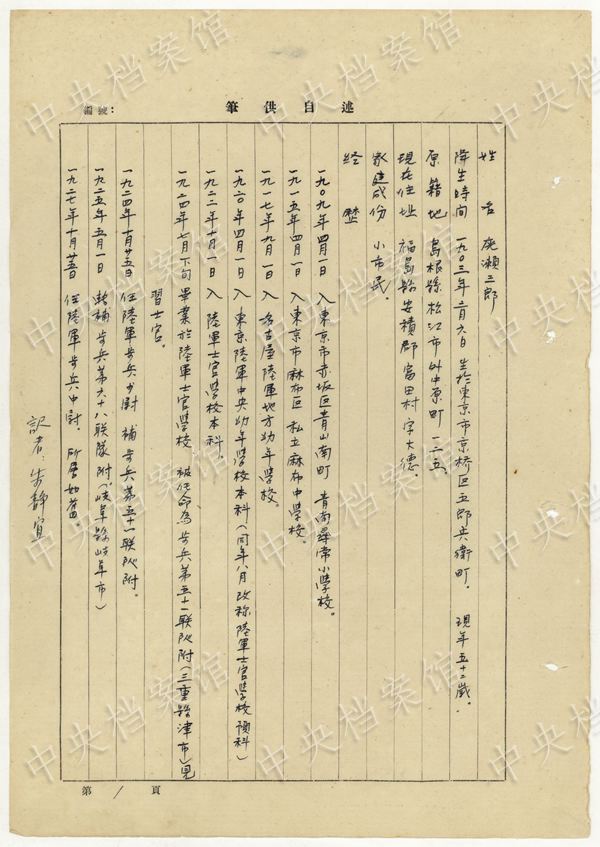 述自供筆
編號：
姓 名 廣瀨三郎
降生時間 一九〇三年二月六日 生於東京市京桥区五郎兵衛町． 現年五十二歲．
原籍地 島根縣松江市外中原町 一二五．
現在住址 福島縣安積郡富田村字大德．
家庭成份 小市民．
經 歷
一九〇九年四月一日 入東京市赤坂区青山南町 青南尋常小學校．
一九一五年四月一日 入東京市麻布区 私立麻布中學校．
一九一七年九月一日 入名古屋陸軍地方幼年學校．
一九二〇年四月一日 入東京陸軍中央幼年學校本科（同年八月改称陸軍士官學校預科）
一九二二年十月一日 入陸軍士官學校本科．
一九二四年七月下旬 畢業於陸軍士官學校 被任命為步兵第五十一联队附（三重縣津市）見
習士官．
一九二四年十月廿五日 任陸軍步兵少尉 補步兵第五十一联队附．
一九二五年五月一日 轉補步兵第六十八联隊附（岐阜縣岐阜市）
一九二七年十月廿五日 任陸軍步兵中尉 所屬如舊。
記者：朱靜宜
第 1 頁
中央档案馆